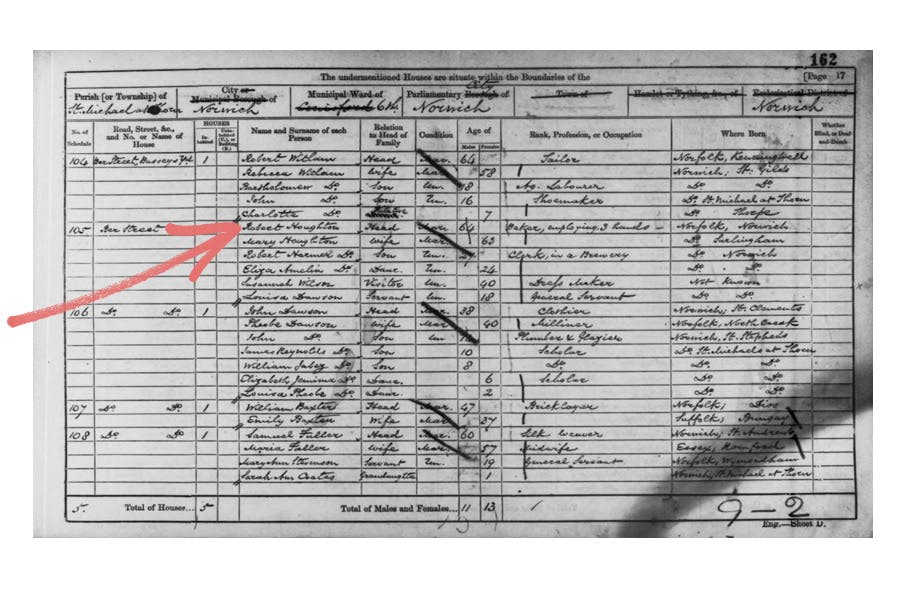 162
The undermentioned Houses are situate within the Boundaries of the [Page 17
Parish [or Township] of City or Municipal Borough of Municipal Ward of Parliamentary City Borough of Town of Hamlet or Tything, &c., of Ecclesiastical District of
St. Michael at Norwich Norwich Norwich
No. of Schedule Road, Street, &c., and No. or Name of House HOUSES Name and Surname of each Person Relation to Head of Family Condition Age of Males Females Rank, Profession, or Occupation Where Born Whether Blind, or Deaf-and-Dumb
104 Ber Street, 1 Robert Witham Head Mar. 64 Tailor Norfolk,
Rebecca Witham Wife Mar. 58 Norwich; St. Giles
Bartholomew Do. Son Un. 18 Ag. Labourer Do. Do.
John Do. Son Un. 16 Shoemaker Do. St. Michael at Thorn
Charlotte Do. 7 Do. Thorpe
105 Ber Street Robert Houghton Head Mar. 64 Baker, employing 3 hands Norfolk, Norwich
Mary Houghton Wife Mar. 63 Do. Surlingham
Robert Harmer Do. Son Un. 27 Clerk, in a Brewery Do. Norwich
Eliza Amelia Do. Daur. Un. 24 Do. Do.
Susannah Wilson Visitor Un. 40 Dress Maker Not Known
Louisa Dawson Servant Un. 18 General Servant Do. Do.
106 Do. Do. 1 John Dawson Head Mar. 38 Clothier Norwich; St. Clements
Phebe Dawson Wife Mar. 40 Milliner Norfolk, North Creak
John Do. Son Un. Plumber & Glazier Norwich, St. Stephens
James Reynolds Do. Son 10 Scholar Do. St. Michaels at Thorn
William Jabez Do. Son 8 Do. Do. Do.
Elizabeth Jemima Do. Daur. 6 Scholar Do. Do.
Louisa Phebe Do. Daur. 2 Do. Do.
107 Do. Do. 1 William Baxter Head Mar. 47 Bricklayer Norfolk; Diss
Emily Baxter Wife Mar. 37 Suffolk; Bungay
108 Do. Do. 1 Samuel Fuller Head Mar. 60 Silk Weaver Norwich; St. Andrews
Maria Fuller Wife Mar. 57 Midwife Essex, Romford
Mary Ann Stevenson Servant Un. 19 General Servant Norfolk, Wymondham
Sarah Ann Coates Grandaughter 1 Norwich, St. Michael at Thorn
5 Total of Houses... 5 Total of Males and Females... 11 13
9-2
Eng.—Sheet D.